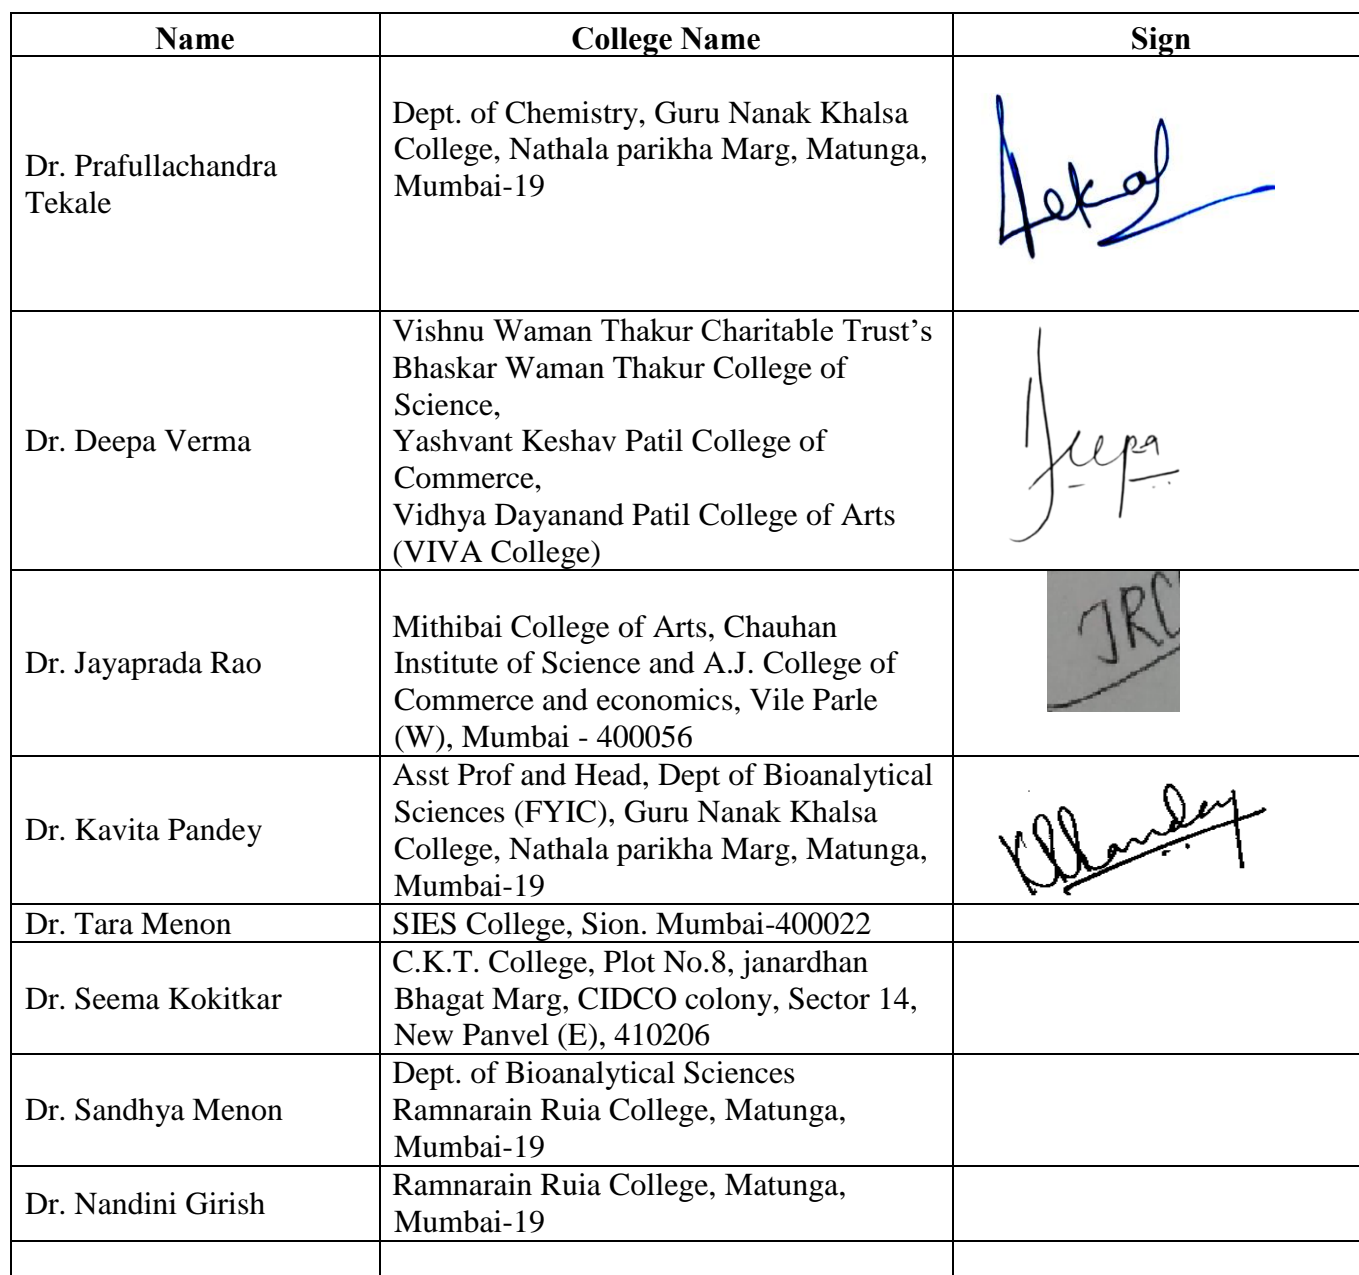 Name College Name Sign
Dr. Prafullachandra
Tekale
Dept. of Chemistry, Guru Nanak Khalsa
College, Nathala parikha Marg, Matunga,
Mumbai-19
Tekal
Dr. Deepa Verma
Vishnu Waman Thakur Charitable Trust’s
Bhaskar Waman Thakur College of
Science,
Yashvant Keshav Patil College of
Commerce,
Vidhya Dayanand Patil College of Arts
(VIVA College)
Deepa
Dr. Jayaprada Rao
Mithibai College of Arts, Chauhan
Institute of Science and A.J. College of
Commerce and economics, Vile Parle
(W), Mumbai - 400056
JRC
Dr. Kavita Pandey
Asst Prof and Head, Dept of Bioanalytical
Sciences (FYIC), Guru Nanak Khalsa
College, Nathala parikha Marg, Matunga,
Mumbai-19
Dr. Tara Menon
SIES College, Sion. Mumbai-400022
Dr. Seema Kokitkar
C.K.T. College, Plot No.8, janardhan
Bhagat Marg, CIDCO colony, Sector 14,
New Panvel (E), 410206
Dr. Sandhya Menon
Dept. of Bioanalytical Sciences
Ramnarain Ruia College, Matunga,
Mumbai-19
Dr. Nandini Girish
Ramnarain Ruia College, Matunga,
Mumbai-19